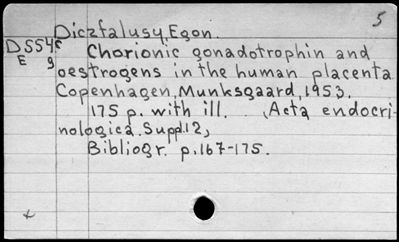 5
Diczfalusy, Egon.
D554c Chorionic gonadotrophin and
E g oestrogens in the human placenta
Copenhagen, Munksgaard, 1953.
175 p. with ill. (Acta endocri-
nologica. Suppl. 12)
Bibliogr. p. 167-175.
x